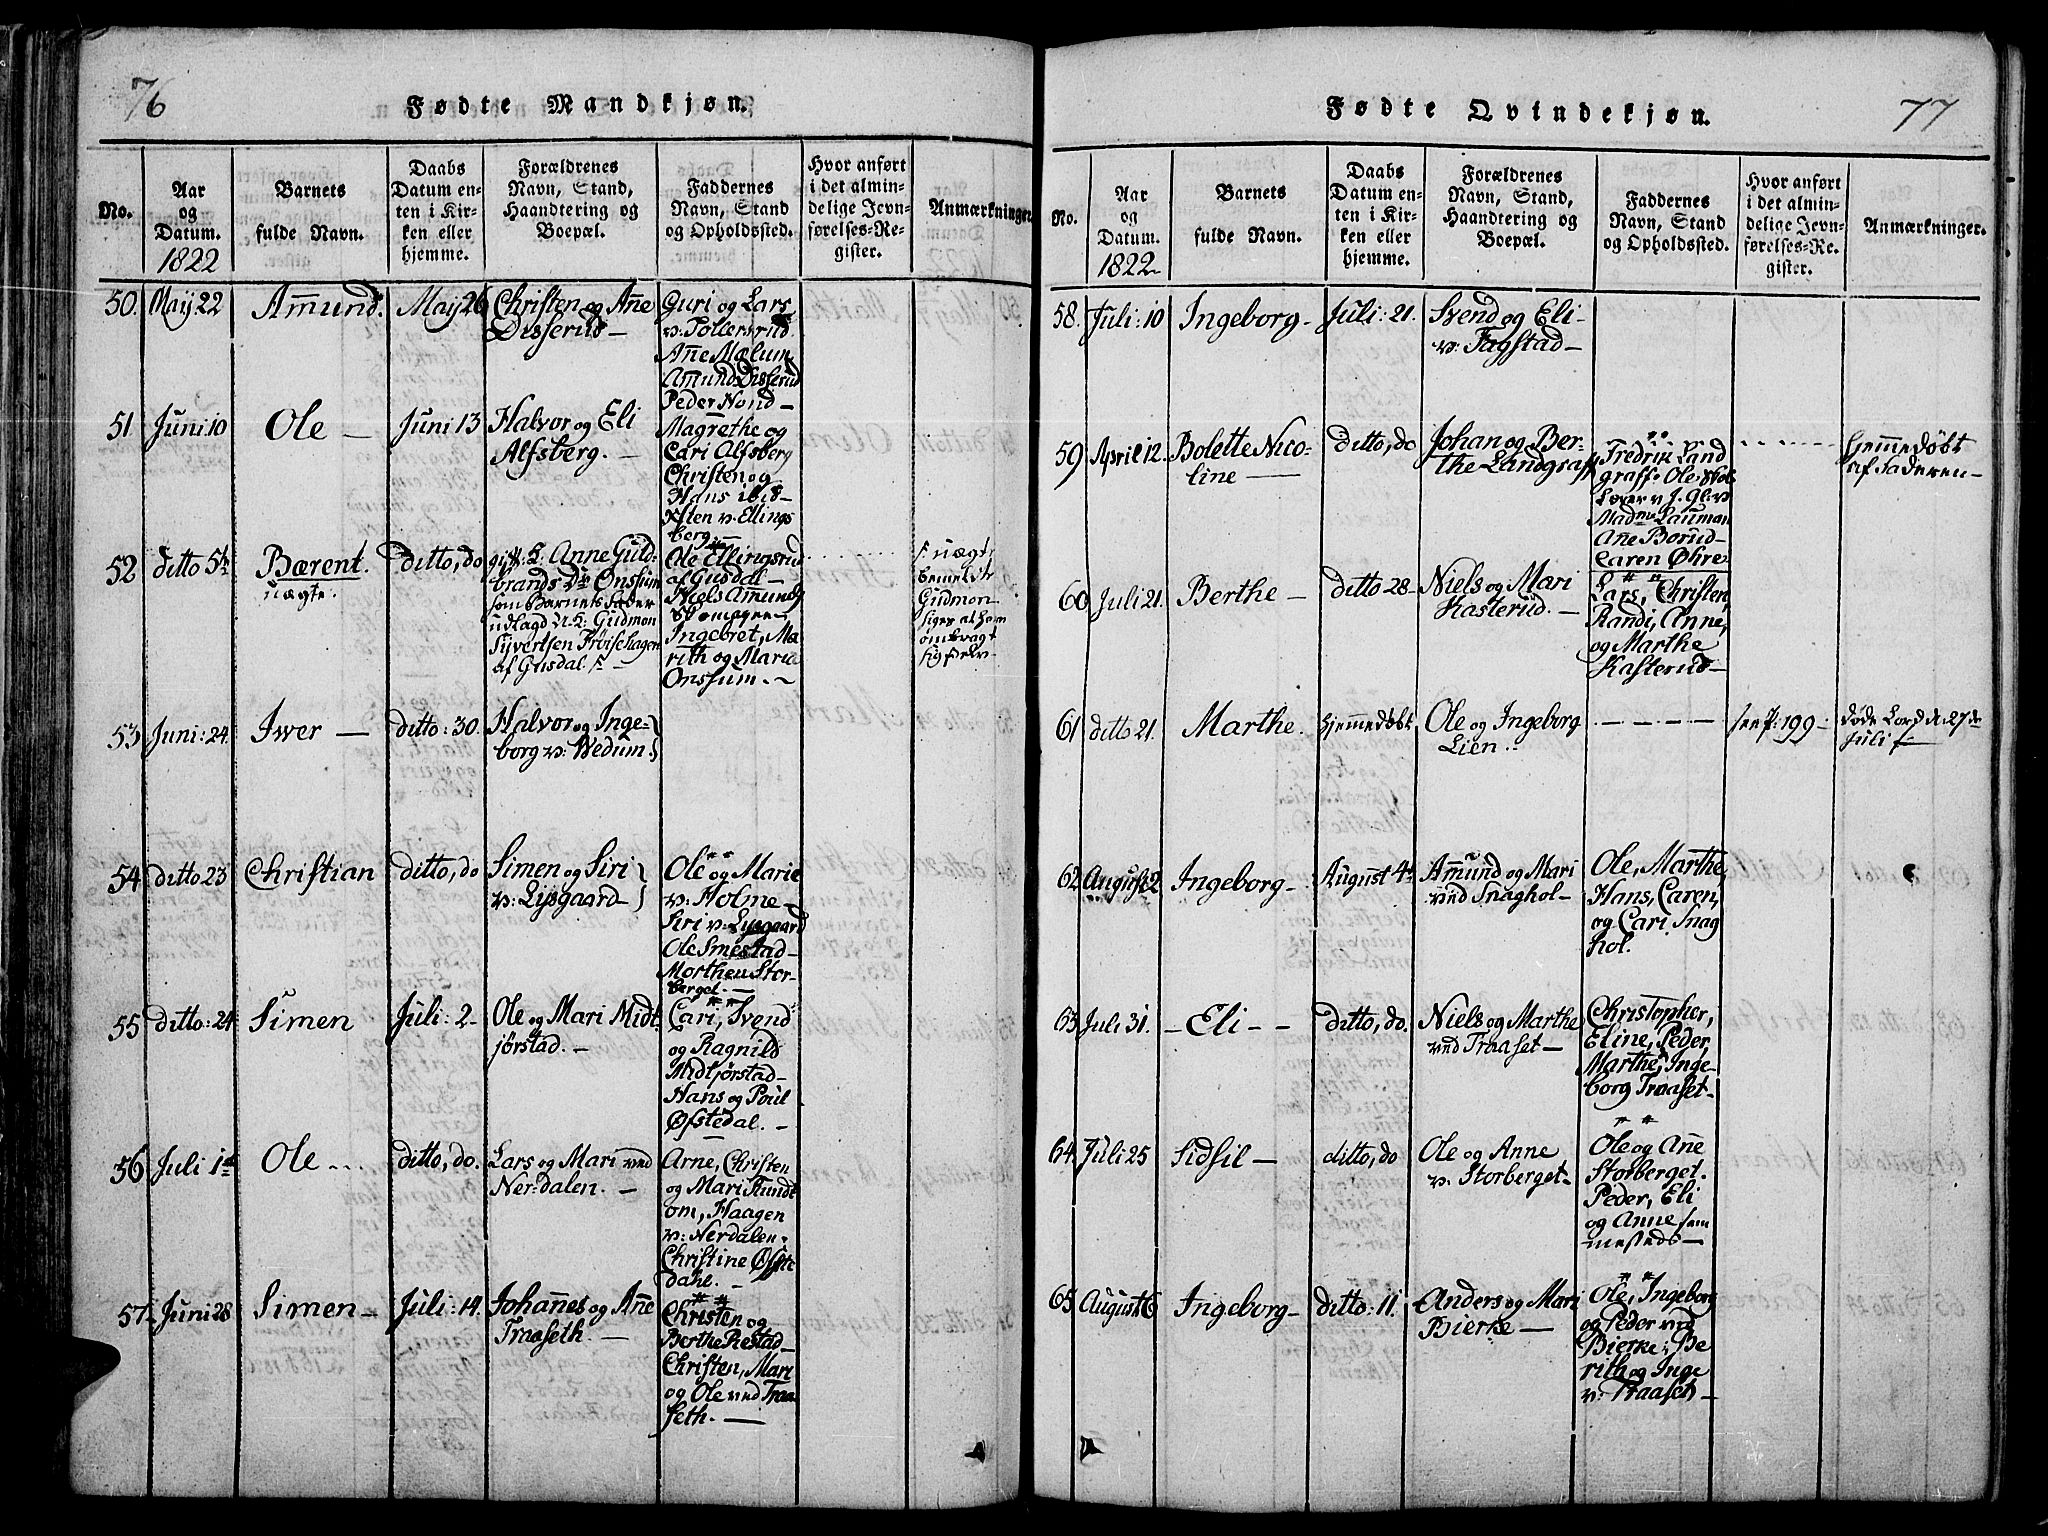 76
Fødte Mandkjøn.
No.
Aar
og
Datum.
1822
Barnets
fulde Navn.
Daabs
Datum en-
ten i Kir-
ken eller
hjemme.
Forældrenes
Navn, Stand,
Haandtering og
Boepæl.
Faddernes
Navn, Stand
og Opholdssted.
Hvor anført
i det almin-
delige Jevn-
førelses-Re-
gister.
Anmærkninger.
50.
May 22
Amund.
May 26
Christen og Ane
Disserud —
Guri og Lars
v: Tollersrud
Ane Mælum
Amund Disserud
Peder Nord —
51
Juni 10
Ole —
Juni 13
Halvor og Eli
Alfsberg. —
Magrethe og
Cari Alfsberg
Christen og
Hans
v. Ellings
berg —
52
ditto 5te
Bærent.
uægte.
ditto, do
Anne Guld-
brands Dtr Onssum
som Barnets Fader
udlagd
Gudmon
Syvertsen Froisehagen
af Gusdal
Ole Ellingsrud
af Gusdal —
Niels Amund
Ingebret, Ma
rith og Maria
Onssum. —
uægt,
Gudmon
53
Juni: 24
Iwer —
ditto: 30.
Halvor og Inge-
borg v: Wedum
54
ditto 23
Christian
ditto, do
Simen og Siri
v: Lysgaard —
Ole og Marie
v: Holme —
Siri v: Lysgaard
Ole Smestad —
Morthen Stor-
berget —
55
ditto: 24
Simen
Juli: 2 —
Ole og Mari Midt
jørstad. —
Cari, Svend
og Ragnild
Midtjørstad —
Hans og Poul
Øfstedal. —
56
Juli 1st
Ole —
ditto, do.
Lars og Mari ved
Nerdalen. —
Arne, Christen
og Mari Flundt
om, Haagen
v: Nerdalen.
Christine Øfste
dahl. —
57
Juni 28
Simen —
Juli: 14.
Johannes og Ane
Traaseth. —
Christen og
Berthe Restad —
Christen, Mari
og Ole ved Traa
seth. —
77
Fødte Qvindekjøn.
No.
Aar
og
Datum.
1822
Barnets
fulde Navn.
Daabs
Datum en-
ten i Kir-
ken eller
hjemme.
Forældrenes
Navn, Stand,
Haandtering og
Boepæl.
Faddernes
Navn, Stand
og Opholdssted.
Hvor anført
i det almin-
delige Jevn-
førelses-Re-
gister.
Anmærkninger.
58.
Juli: 10
Ingeborg —
Juli: 21.
Svend og Eli —
v: Fagstad —
59
April 12.
Bolette Nico-
line —
Ditto, do
Johan og Ber-
the Landgraff
Fredrik Land
graff. Ole Skole
Lærer v. J. Gl: v:
Madme Lauman
Ane Borud —
Caren Øhre
Hjemmedøbt
af Faderen —
60
Juli 21.
Berthe —
ditto 28 —
Niels og Mari
Kasterud. —
Lars, Christen,
Randi, Anne,
og Marthe
Kasterud —
61
ditto 21.
Marthe.
Hjemmedøbt
Ole og Ingeborg
Lien. —
see f: 199 —
døde
27de
Juli
62
August 2
Ingeborg —
August 4de
Amund og Mari
ved Snaghol —
Ole, Marthe,
Hans, Caren,
og Cari Snag
hol.
63
Juli 31.
— Eli —
ditto, do.
Niels og Marthe
ved Traaset —
Christopher,
Eline, Peder
Marthe, Inge-
borg Traaset —
64
Juli 25
Sidsil —
ditto, do
Ole og Anne
v: Storberget —
Ole og Ane
Storberget.
Peder, Eli
og Anne sam
mesteds —
65
August 6
Ingeborg —
ditto: 11.
Anders og Mari
Bierke —
Ole, Ingeborg
og Peder ved
Bierke, Be
rith og Inge
v: Traaset —